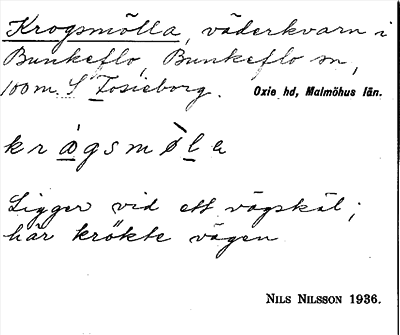 Krogsmölla, väderkvarn i
Bunkeflo, Bunkeflo sn,
100 m. S Fosieborg. Oxie hd, Malmöhus län.
krågsmöla
Ligger vid ett vägskäl;
här krökte vägen
NILS NILSSON 1936.